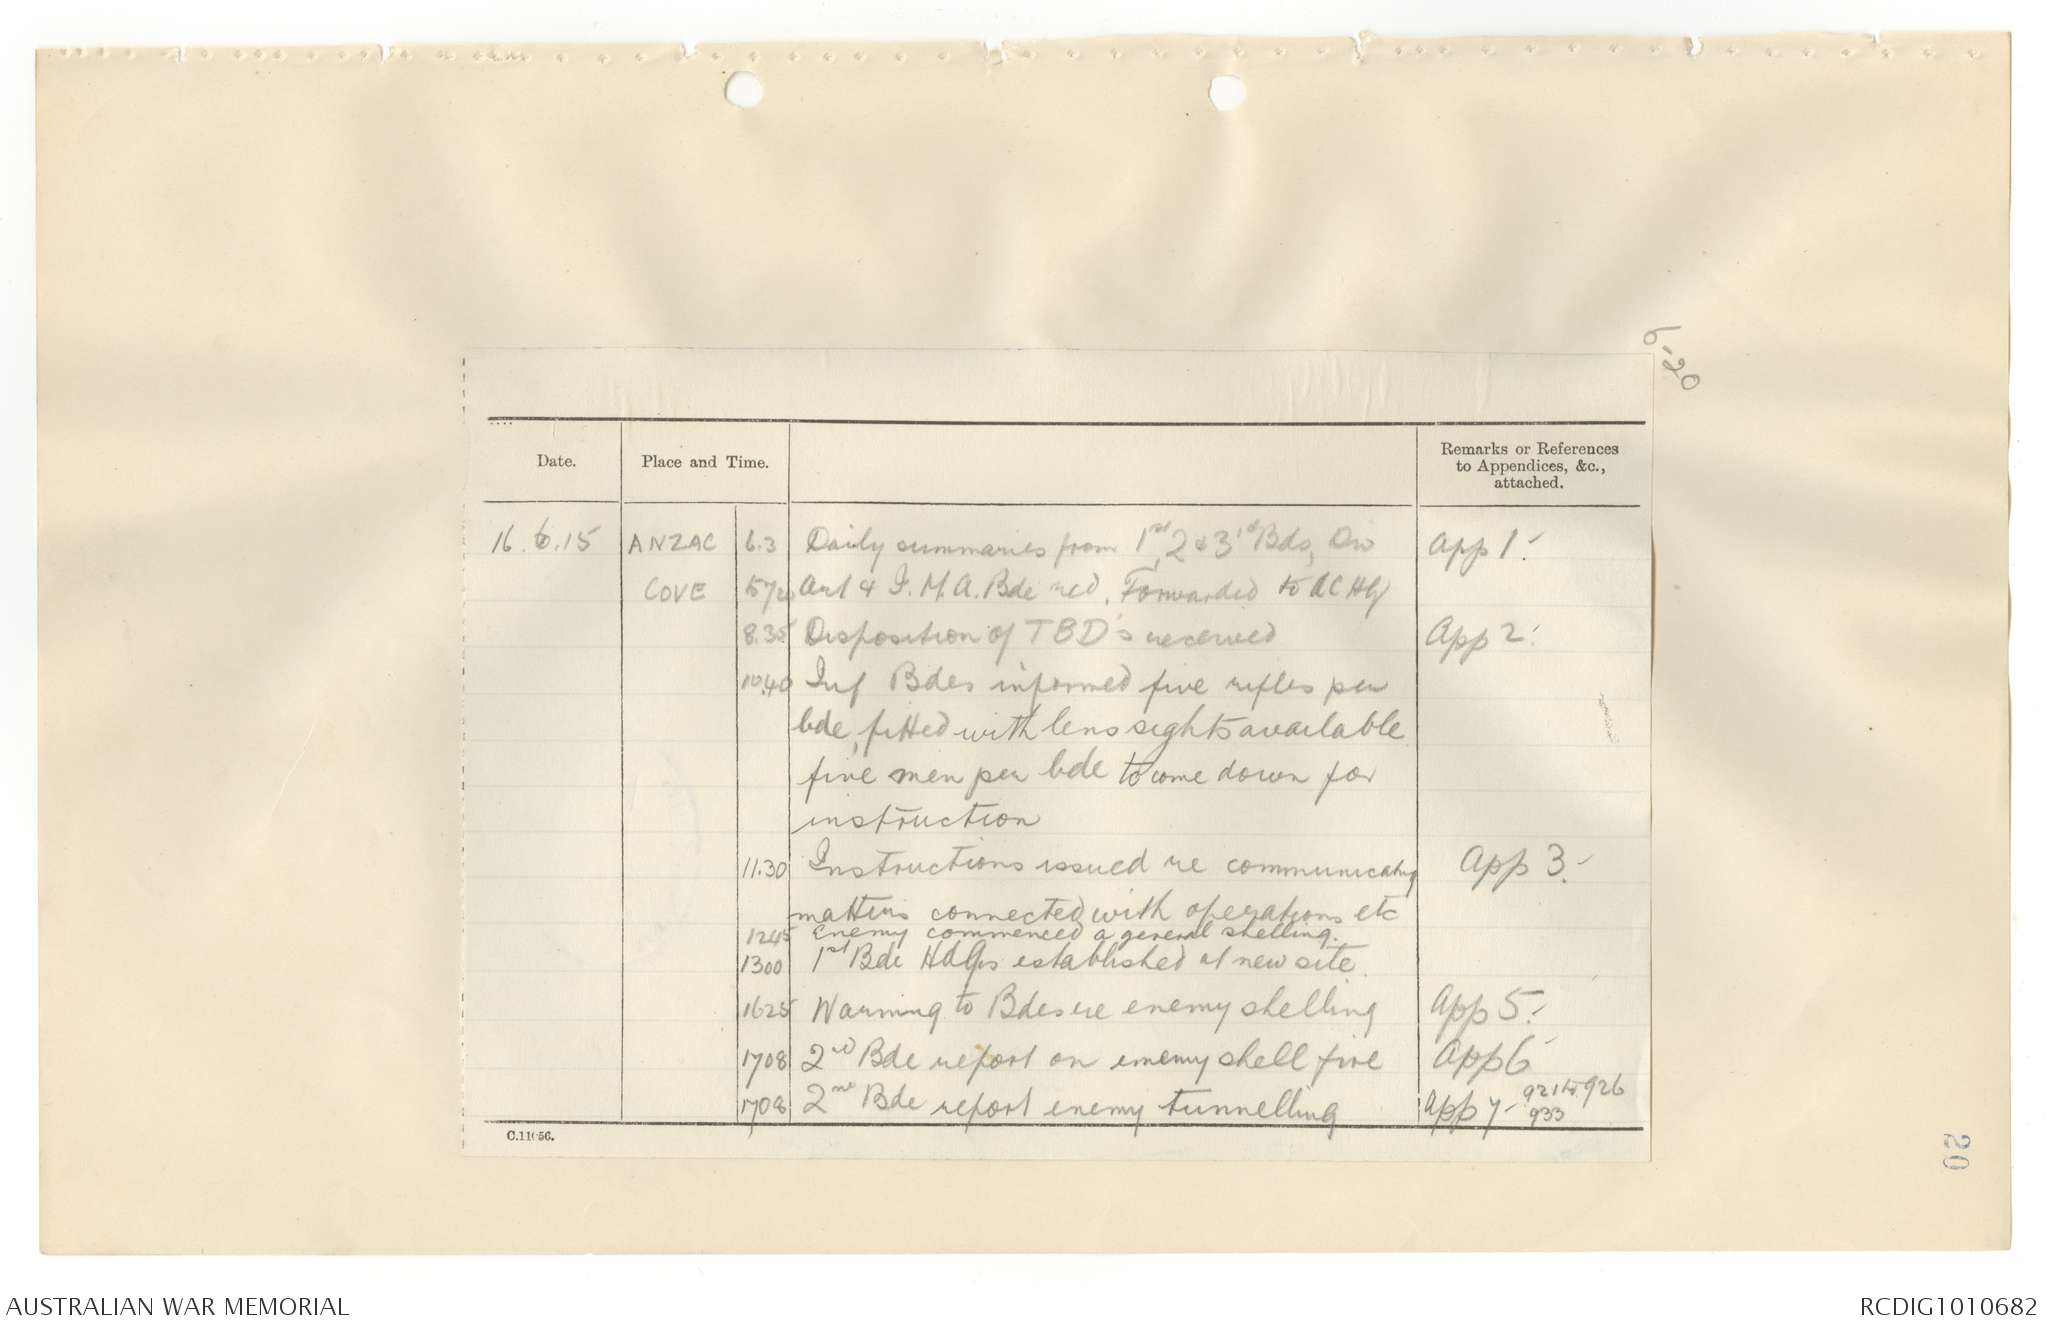 6-20
Date.
Place and Time.
Remarks or References
to Appendices, &c.,
attached.
16.6.15 ANZAC 6.3 Daily summaries from 1st, 2 & 3rd Bds, Div App 1.
COVE Art & I.M.A. Bde recd. Forwarded to AC HQ
8.35 Disposition of TBD's received App 2.
10.40 Inf Bdes informed five rifles per
bde, fitted with lens sights available
five men per bde to come down for
instruction
11.30 Instructions issued re communicating App 3.
matters connected with operations etc
1245 Enemy commenced a general shelling.
1300 1st Bde HdQrs established at new site.
1625 Warning to Bdes re enemy shelling App 5.
1708 2nd Bde report on enemy shell fire App 6
1708 2nd Bde report enemy tunnelling App 7- 921 to 926
933
C.11656.
20
AUSTRALIAN WAR MEMORIAL
RCDIG1010682